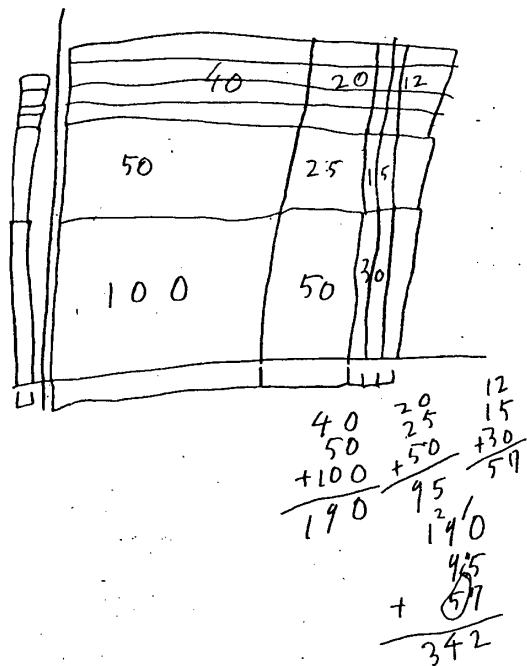 40 20 12
50 25 15
100 50 30
40
50
+100
190
20
25
+50
95
12
15
+30
57
1 2
190
95
+ 57
342